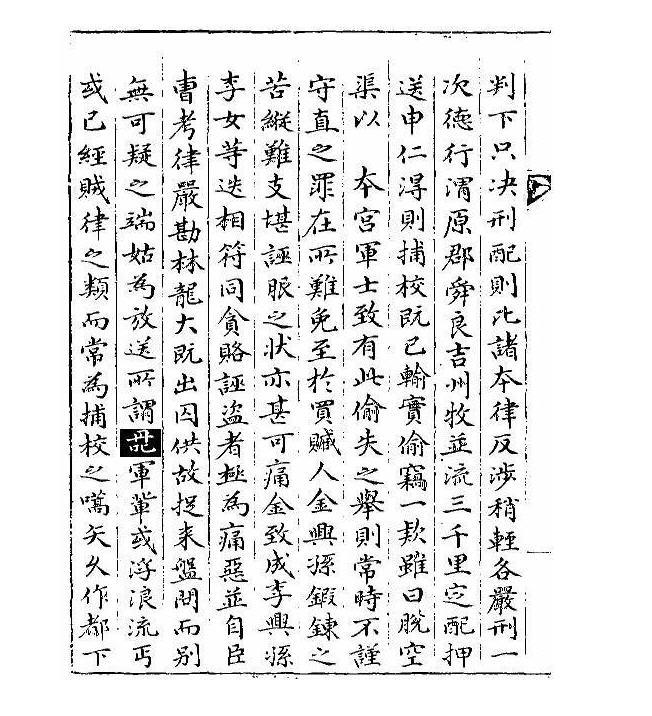 判下只决刑配則比諸本律反涉稍輕各嚴刑一
次德行渭原郡舜良吉州牧並流三千里定配押
送申仁淂則捕校旣已輸實偷竊一款雖曰脫空
渠以 本宮軍士致有此偷失之擧則常時不謹
守直之罪在所難免至於買贓人金興孫鍛鍊之
苦縱難支堪誣服之狀亦甚可痛金致成李興孫
李女等迭相符同貪賂誣盜者極爲痛惡並自臣
曹考律嚴勘林龍大旣出囚供故捉来盤問而別
無可疑之端姑爲放送所謂軍輩或浮浪流丐
或已經賊律之類而常爲捕校之囑矢久作都下